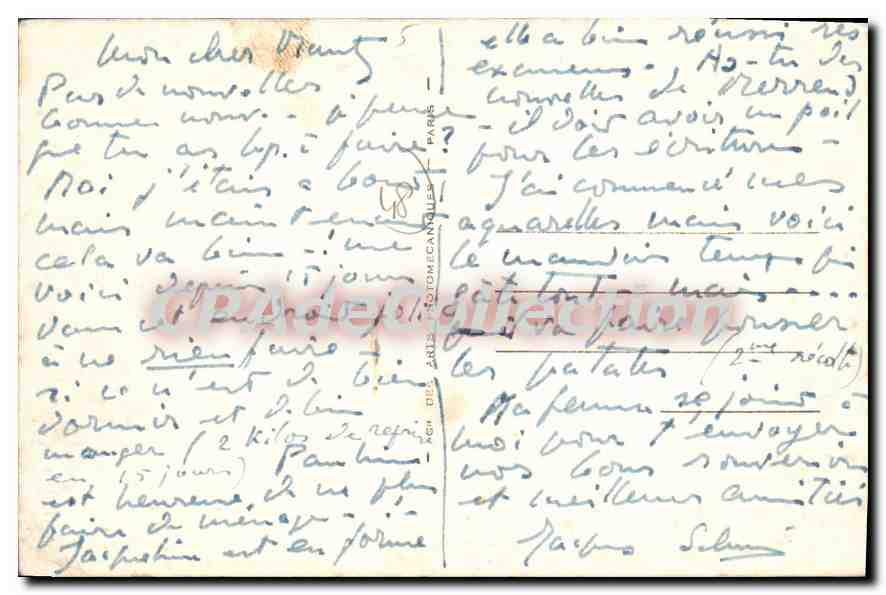 Mon cher
Pas de nouvelles
bonnes nouv. - je pense
que tu as bp. à faire ?
Moi j'étais à bout
mais maintenant
cela va bien - me
voici depuis 15 jours
dans cet endroit joli
à ne rien faire
si ce n'est de bien
dormir et de bien
manger (2 kilos de repris
en 15 jours) Pauline
est heureuse de ne plus
faire de ménage -
Jacqueline est en forme
elle a bien réussi ses
examens - As-tu des
nouvelles de
- il doit avoir un poil
pour les écritures -
J'ai commencé mes
aquarelles mais voici
le maudit temps qui
gâte tout - mais
ça va faire pousser
les patates (2me récolte)
Ma femme se joint à
moi pour t'envoyer
nos bons souvenirs
et meilleures amitiés
Jacques
5
48
— AGce DES ARTS PHOTOMECANIQUES — PARIS —
CPADeCollection